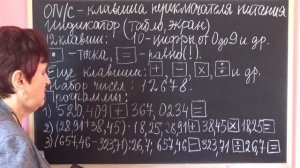 ON/C - клавиша переключателя питания
Индикатор (табло, экран)
12 клавиш: 10-цифры от 0 до 9 и др.
• - точка, = - равно(!).
Ещё клавиши: + , - , × , ÷ и др.
Набор чисел: 12678.
Программы:
1) 580,409 + 367,0234 =
2) (28,91+38,45)·18,25; 28,91 + 38,45 × 18,25 =
3) (657,46-323,71):26,7; 657,46 - 323,71 ÷ 26,7 =